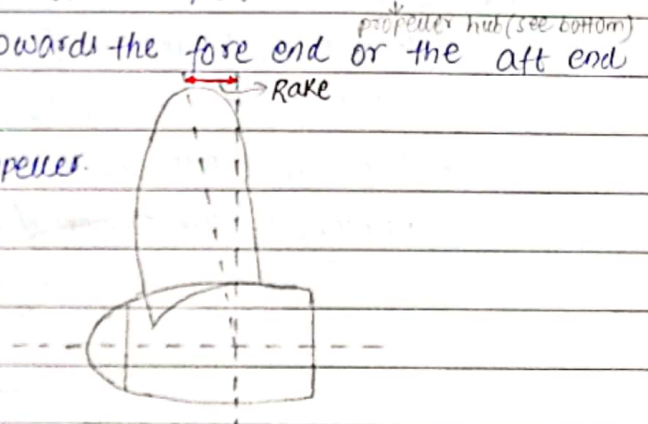 propeller hub (see bottom)
owards the fore end or the aft end
Rake
peller.